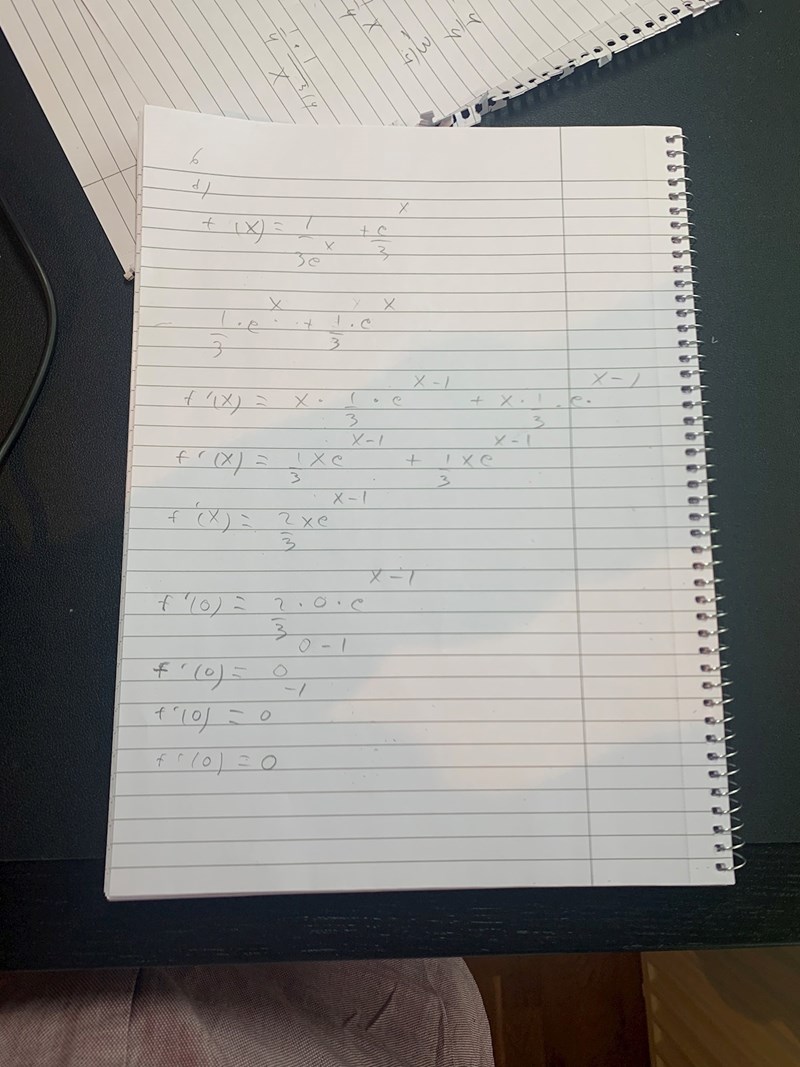 6
d)
f (x) = 1/3e^x + e^x/3
1/3 · e^x + 1/3 · e^x
f'(x) = x · 1/3 · e^x-1 + x · 1/3 · e^x-1
f'(x) = 1/3 xe^x-1 + 1/3 xe^x-1
f'(x) = 2/3 xe^x-1
f'(0) = 2/3 · 0 · e^x-1
f'(0) = 0^0-1
f'(0) = 0^-1
f'(0) = 0